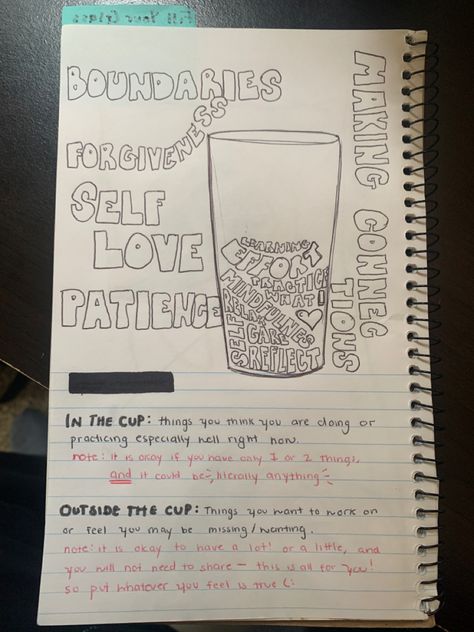 Fill Your Glass
BOUNDARIES
FORGIVENESS
SELF
LOVE
PATIENCE
LEARNING
EFFORT
PRACTICE
WHAT I ♡
MINDFULNESS
RELAX
SELF CARE
REFLECT
MAKING CONNECTIONS
IN THE CUP: things you think you are doing or
practicing especially well right now.
note: it is okay if you have only 1 or 2 things,
and it could be literally anything
OUTSIDE THE CUP: Things you want to work on
or feel you may be missing/wanting.
note: it is okay to have a lot! or a little, and
you will not need to share — this is all for you!
so put whatever you feel is true (: